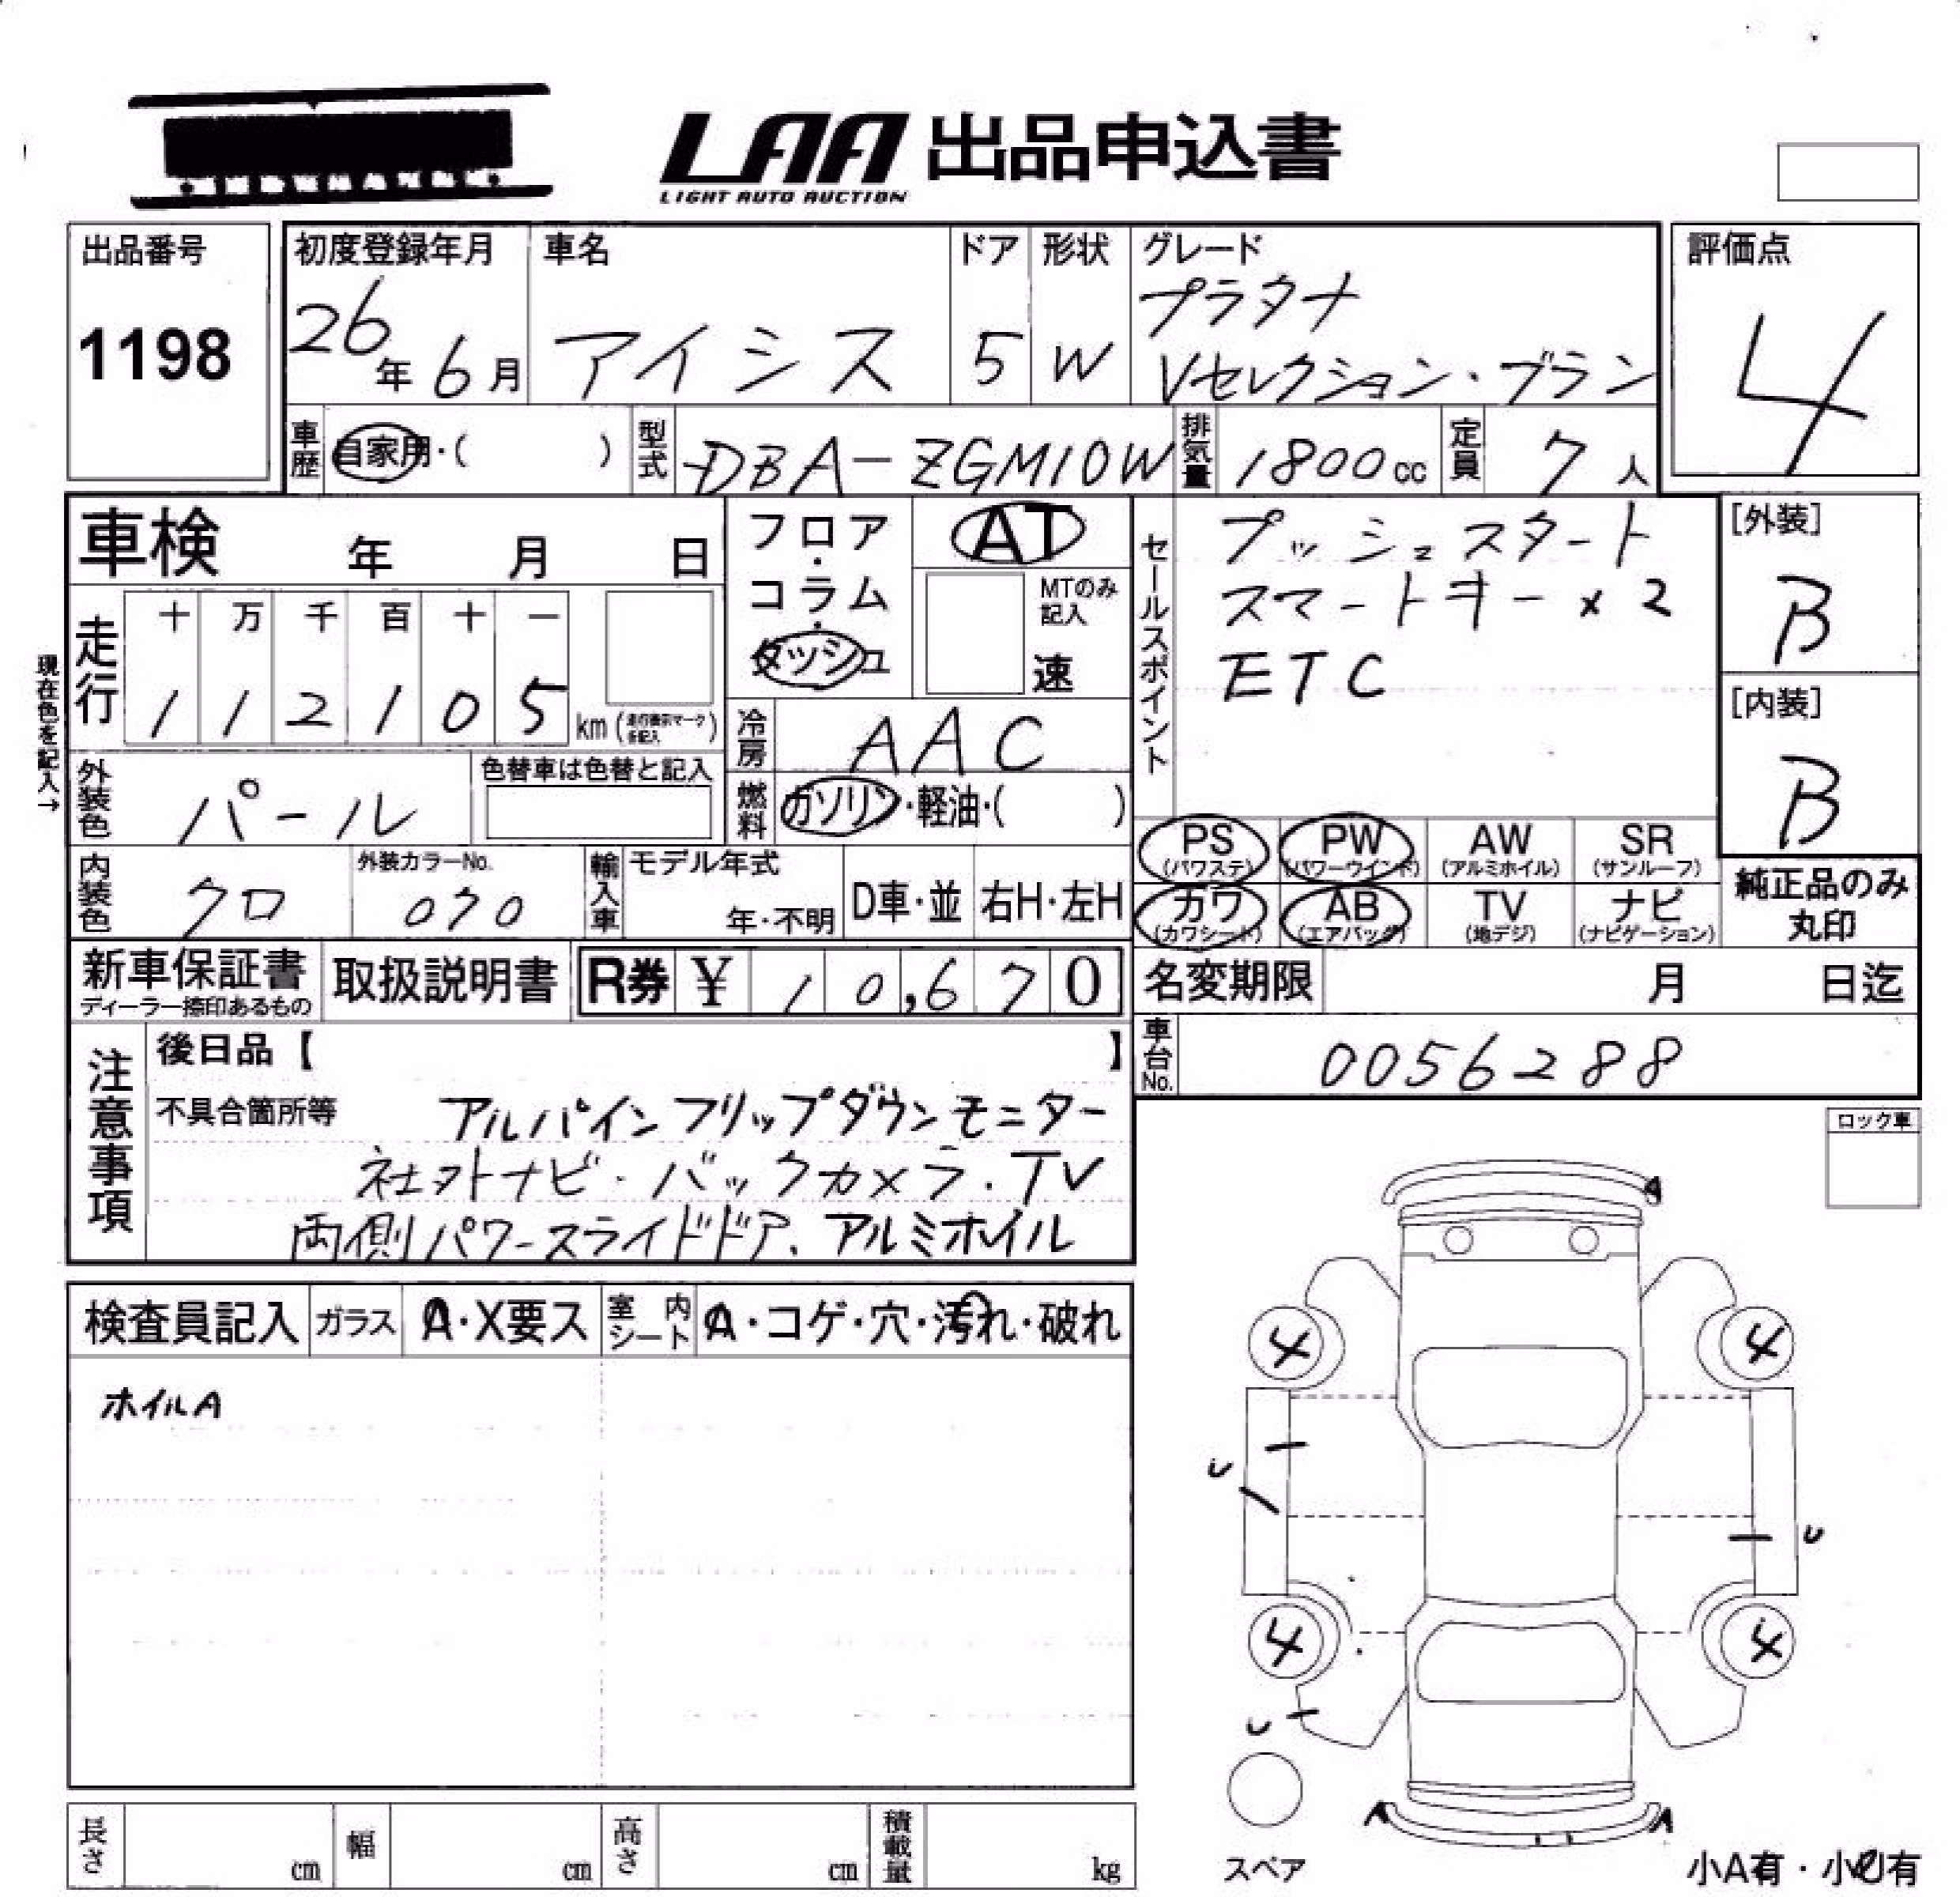 LAA 出品申込書
LIGHT AUTO AUCTION
出品番号
1198
初度登録年月
26年 6月
車名
アイシス
ドア
5
形状
W
グレード
プラタナ
Vセレクション・ブラン
評価点
4
車歴 自家用・( )
型式 DBA-ZGM10W
排気量 1800cc
定員 7人
車検 年 月 日
フロア・コラム・ダッシュ
AT
MTのみ記入
速
セールスポイント
プッシュスタート
スマートキー×2
ETC
[外装]
B
[内装]
B
現在色を記入→
走行
十 万 千 百 十 一
1 1 2 1 0 5 km
冷房 AAC
燃料 ガソリン・軽油・( )
外装色 パール
色替車は色替と記入
内装色 クロ
外装カラーNo.
070
輸入車
モデル年式
年・不明
D車・並
右H・左H
PS (パワステ)
PW (パワーウインド)
AW (アルミホイル)
SR (サンルーフ)
カワ (カワシート)
AB (エアバッグ)
TV (地デジ)
ナビ (ナビゲーション)
純正品のみ
丸印
新車保証書
ディーラー捺印あるもの
取扱説明書
R券 ¥ 10,670
名変期限 月 日迄
車台No. 0056288
注意事項
後日品【 】
不具合箇所等
アルパインフリップダウンモニター
社外ナビ・バックカメラ・TV
両側パワースライドドア、アルミホイル
ロック車
検査員記入
ガラス
A・X要ス
室内シート
A・コゲ・穴・汚れ・破れ
ホイルA
A
4 4
U
U
4 4
U
A A
スペア
小A有・小U有
長さ cm
幅 cm
高さ cm
積載量 kg